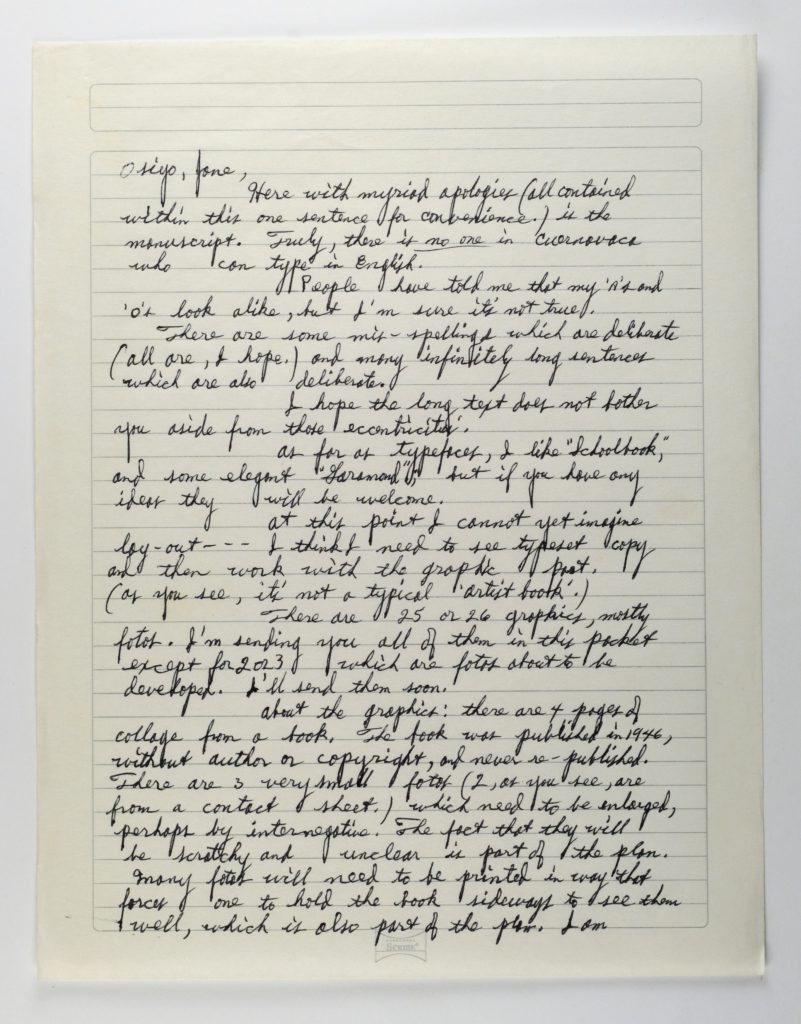 Osiyo, Jane,
Here with myriad apologies (all contained
within this one sentence for convenience.) is the
manuscript. Truly, there is no one in Cuernavaca
who can type in English.
People have told me that my 'A's and
'O's look alike, but I'm sure it's not true.
There are some mis-spellings which are deliberate
(all are, I hope.) and many infinitely long sentences
which are also deliberate.
I hope the long text does not bother
you aside from those eccentricities.
as far as typefaces, I like "Schoolbook,"
and some elegant "Garamond"s but if you have any
ideas they will be welcome.
at this point I cannot yet imagine
lay-out--- I think I need to see typeset copy
and then work with the graphic part.
(as you see, it's not a typical 'artist book'.)
There are 25 or 26 graphics, mostly
fotos. I'm sending you all of them in this packet
except for 2 or 3 which are fotos about to be
developed. I'll send them soon.
about the graphics: there are 4 pages of
collage from a book. The book was published in 1946,
without author or copyright, and never re-published.
There are 3 very small fotos (2, as you see, are
from a contact sheet.) which need to be enlarged,
perhaps by internegative. The fact that they will
be scratchy and unclear is part of the plan.
Many fotos will need to be printed in way that
forces one to hold the book sideways to see them
well, which is also part of the plan. I am
Scribe